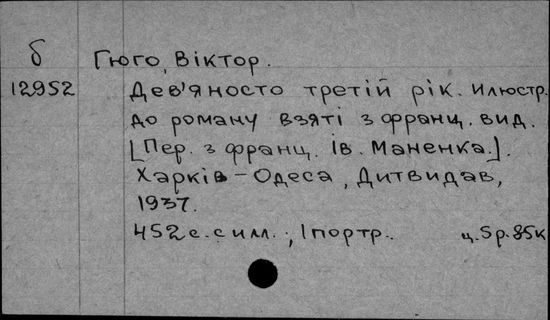 б Гюго, Віктор.
12952 Дев'яносто третій рік. Илюстр.
до роману взяті з франц. вид.
[Пер. з франц. Ів. Маненка.].
Харків – Одеса, Дитвидав,
1937.
452 с. с илл.; 1 портр.. ц. 5р. 85к